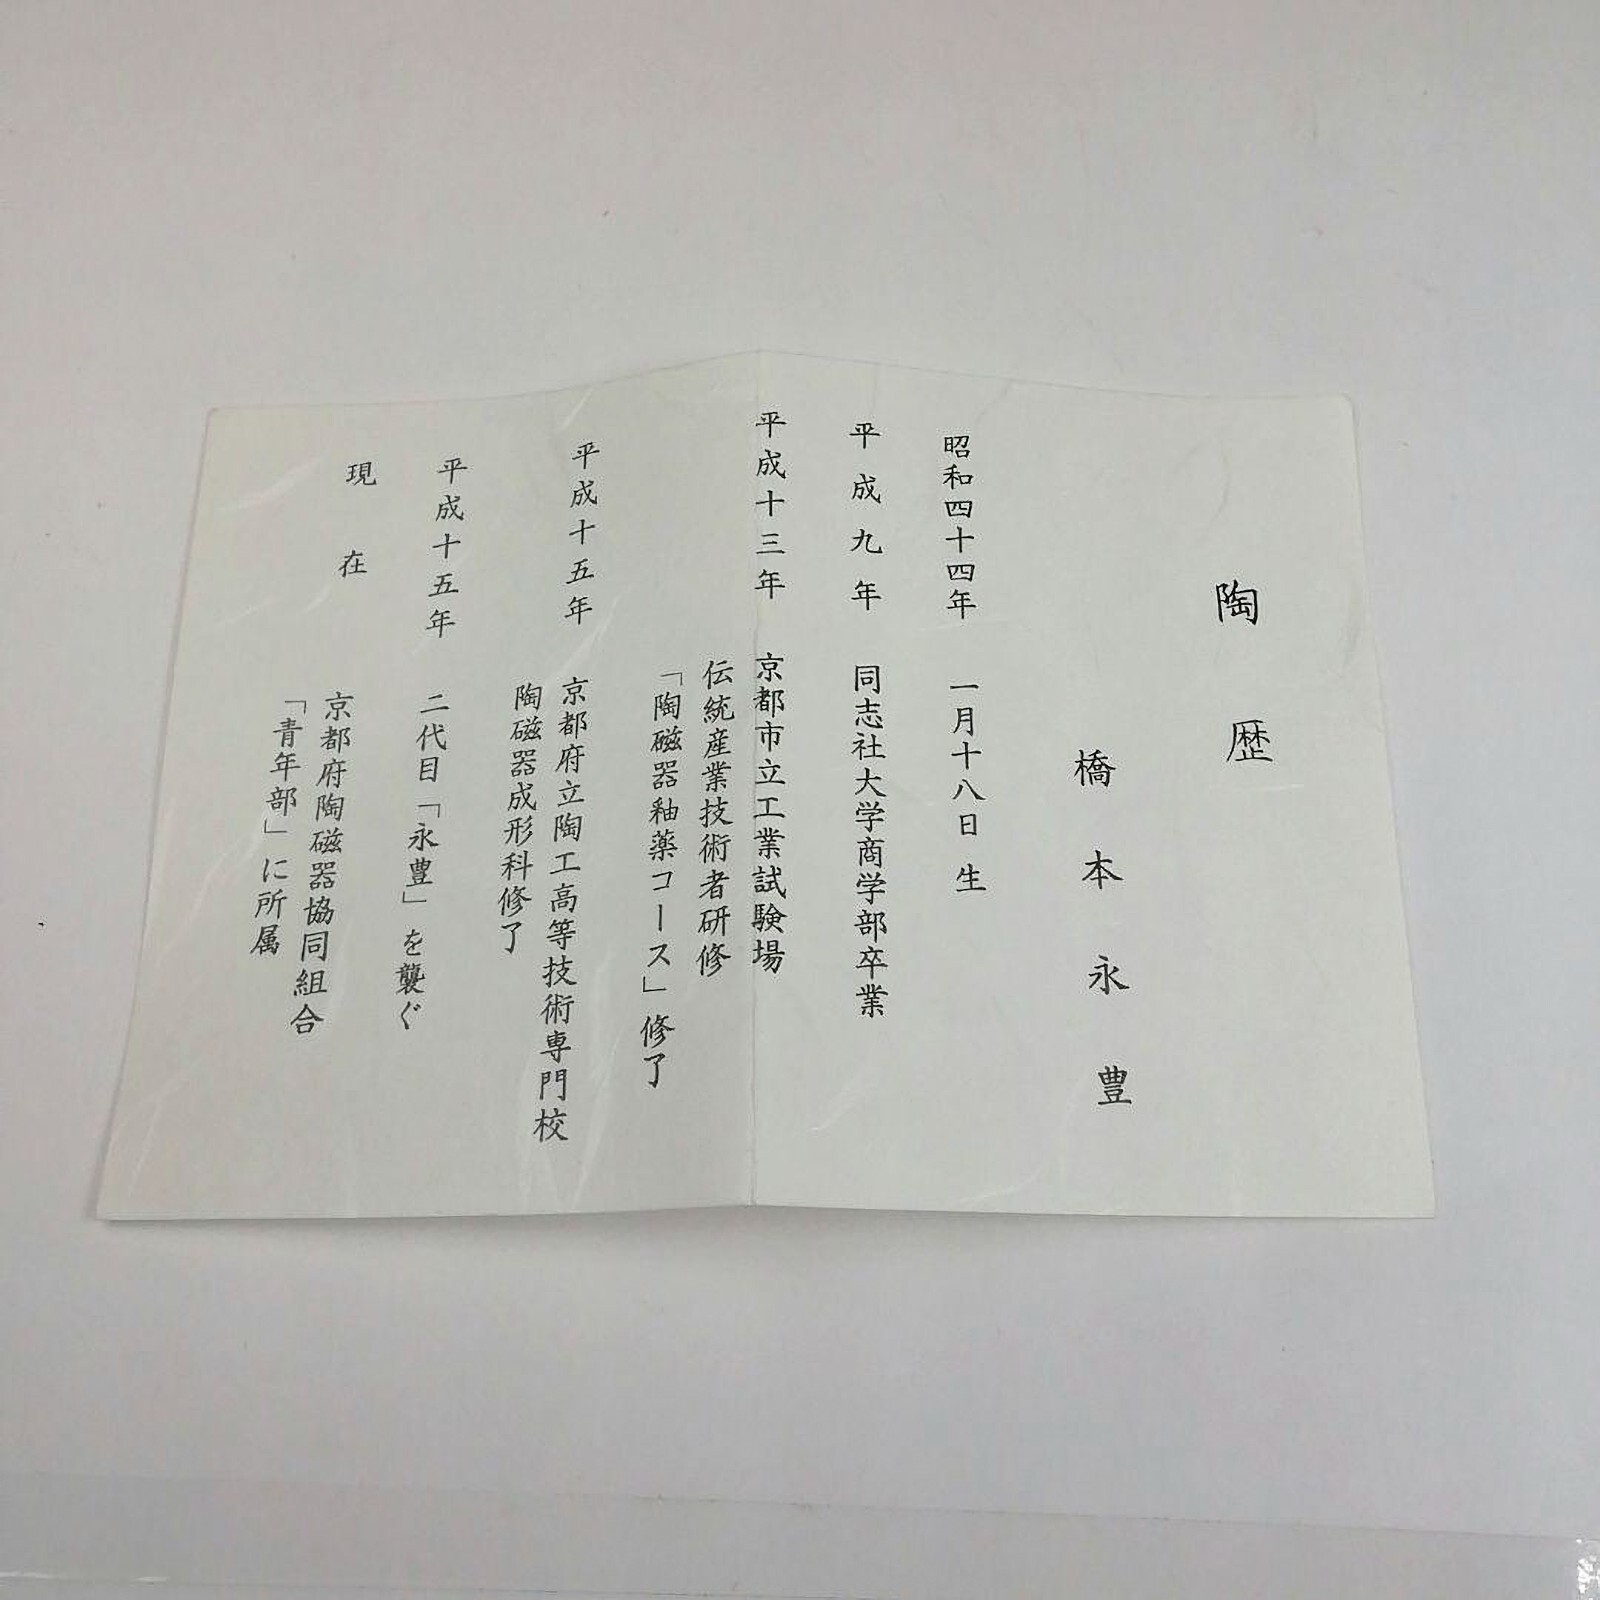 陶歴
橋本永豊
昭和四十四年 一月十八日生
平成九年 同志社大学商学部卒業
平成十三年 京都市立工業試験場
伝統産業技術者研修
「陶磁器釉薬コース」修了
平成十五年 京都府立陶工高等技術専門校
陶磁器成形科修了
平成十五年 二代目「永豊」を襲ぐ
現在 京都府陶磁器協同組合
「青年部」に所属